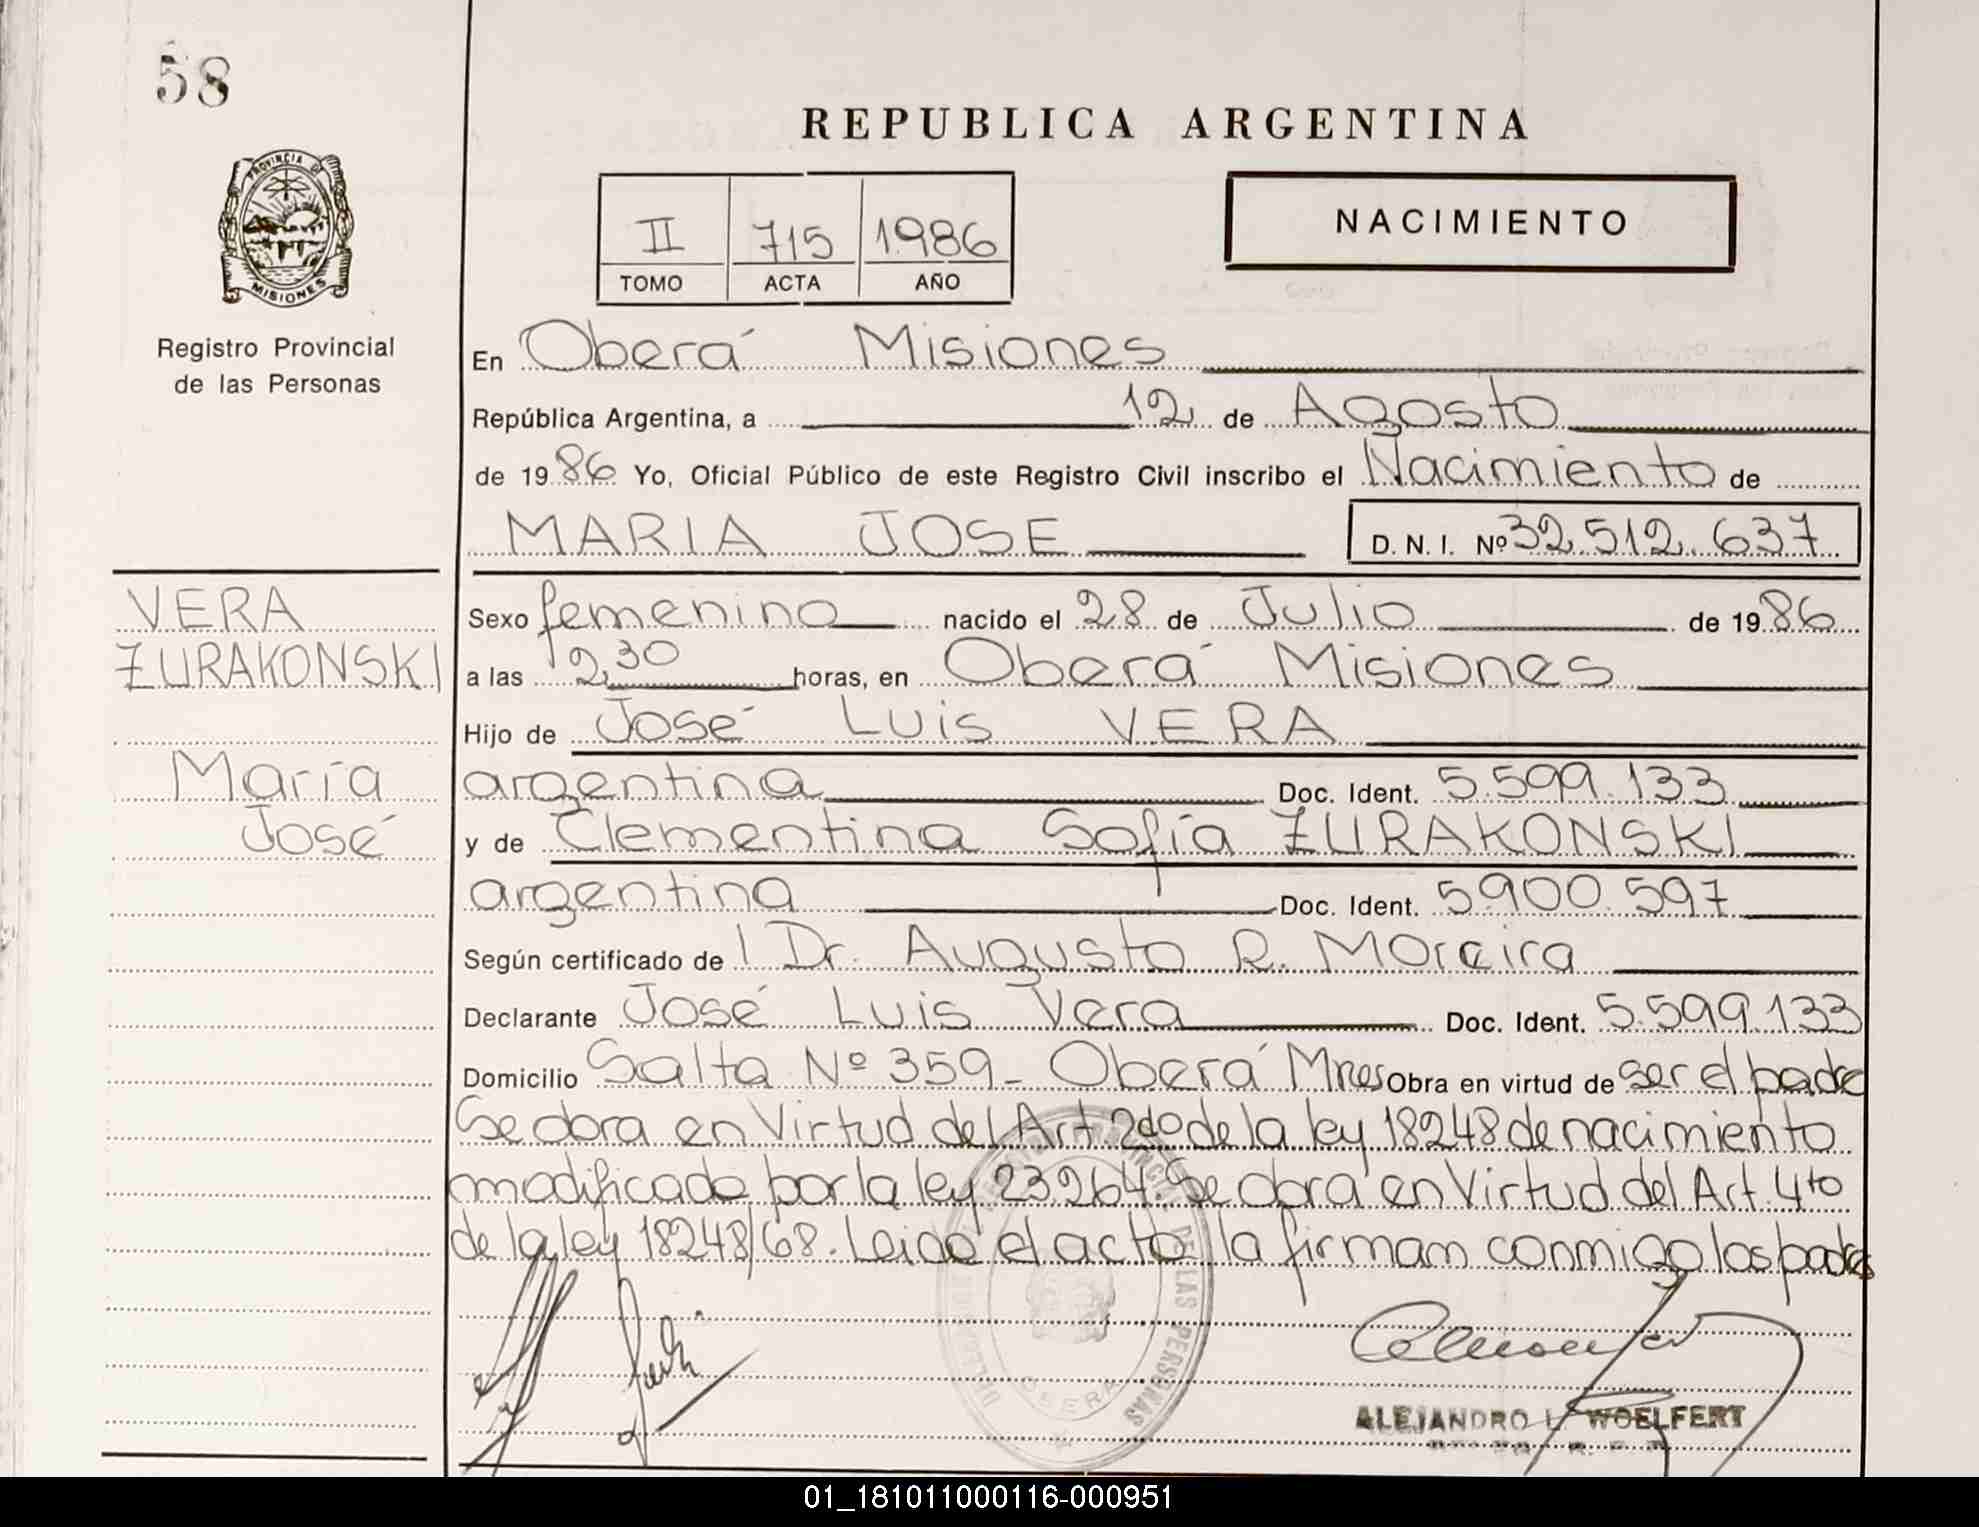 58
REPUBLICA ARGENTINA
PROVINCIA DE
MISIONES
Registro Provincial
de las Personas
II 715 1986
TOMO ACTA AÑO
NACIMIENTO
En Oberá Misiones
República Argentina, a 12 de Agosto
de 1986 Yo, Oficial Público de este Registro Civil inscribo el Nacimiento de
MARIA JOSE D. N. I. Nº 32.512.637
VERA
ZURAKONSKI
María
José
Sexo femenino nacido el 28 de Julio de 1986
a las 2,30 horas, en Oberá Misiones
Hijo de José Luis VERA
argentina Doc. Ident. 5.599.133
y de Clementina Sofía ZURAKONSKI
argentina Doc. Ident. 5900.597
Según certificado de l Dr. Augusto R. Moreira
Declarante José Luis Vera Doc. Ident. 5.599.133
Domicilio Salta Nº 359- Oberá Mnes Obra en virtud de ser el padre
Se obra en Virtud del Art 2do de la ley 18248 de nacimiento
modificado por la ley 23.264. Se obra en Virtud del Art. 4to
de la ley 18248/68. Leido el acto la firman conmigo los padres
DE LAS PERSONAS
OBERA
ALEJANDRO L. WOELFERT
01_181011000116-000951